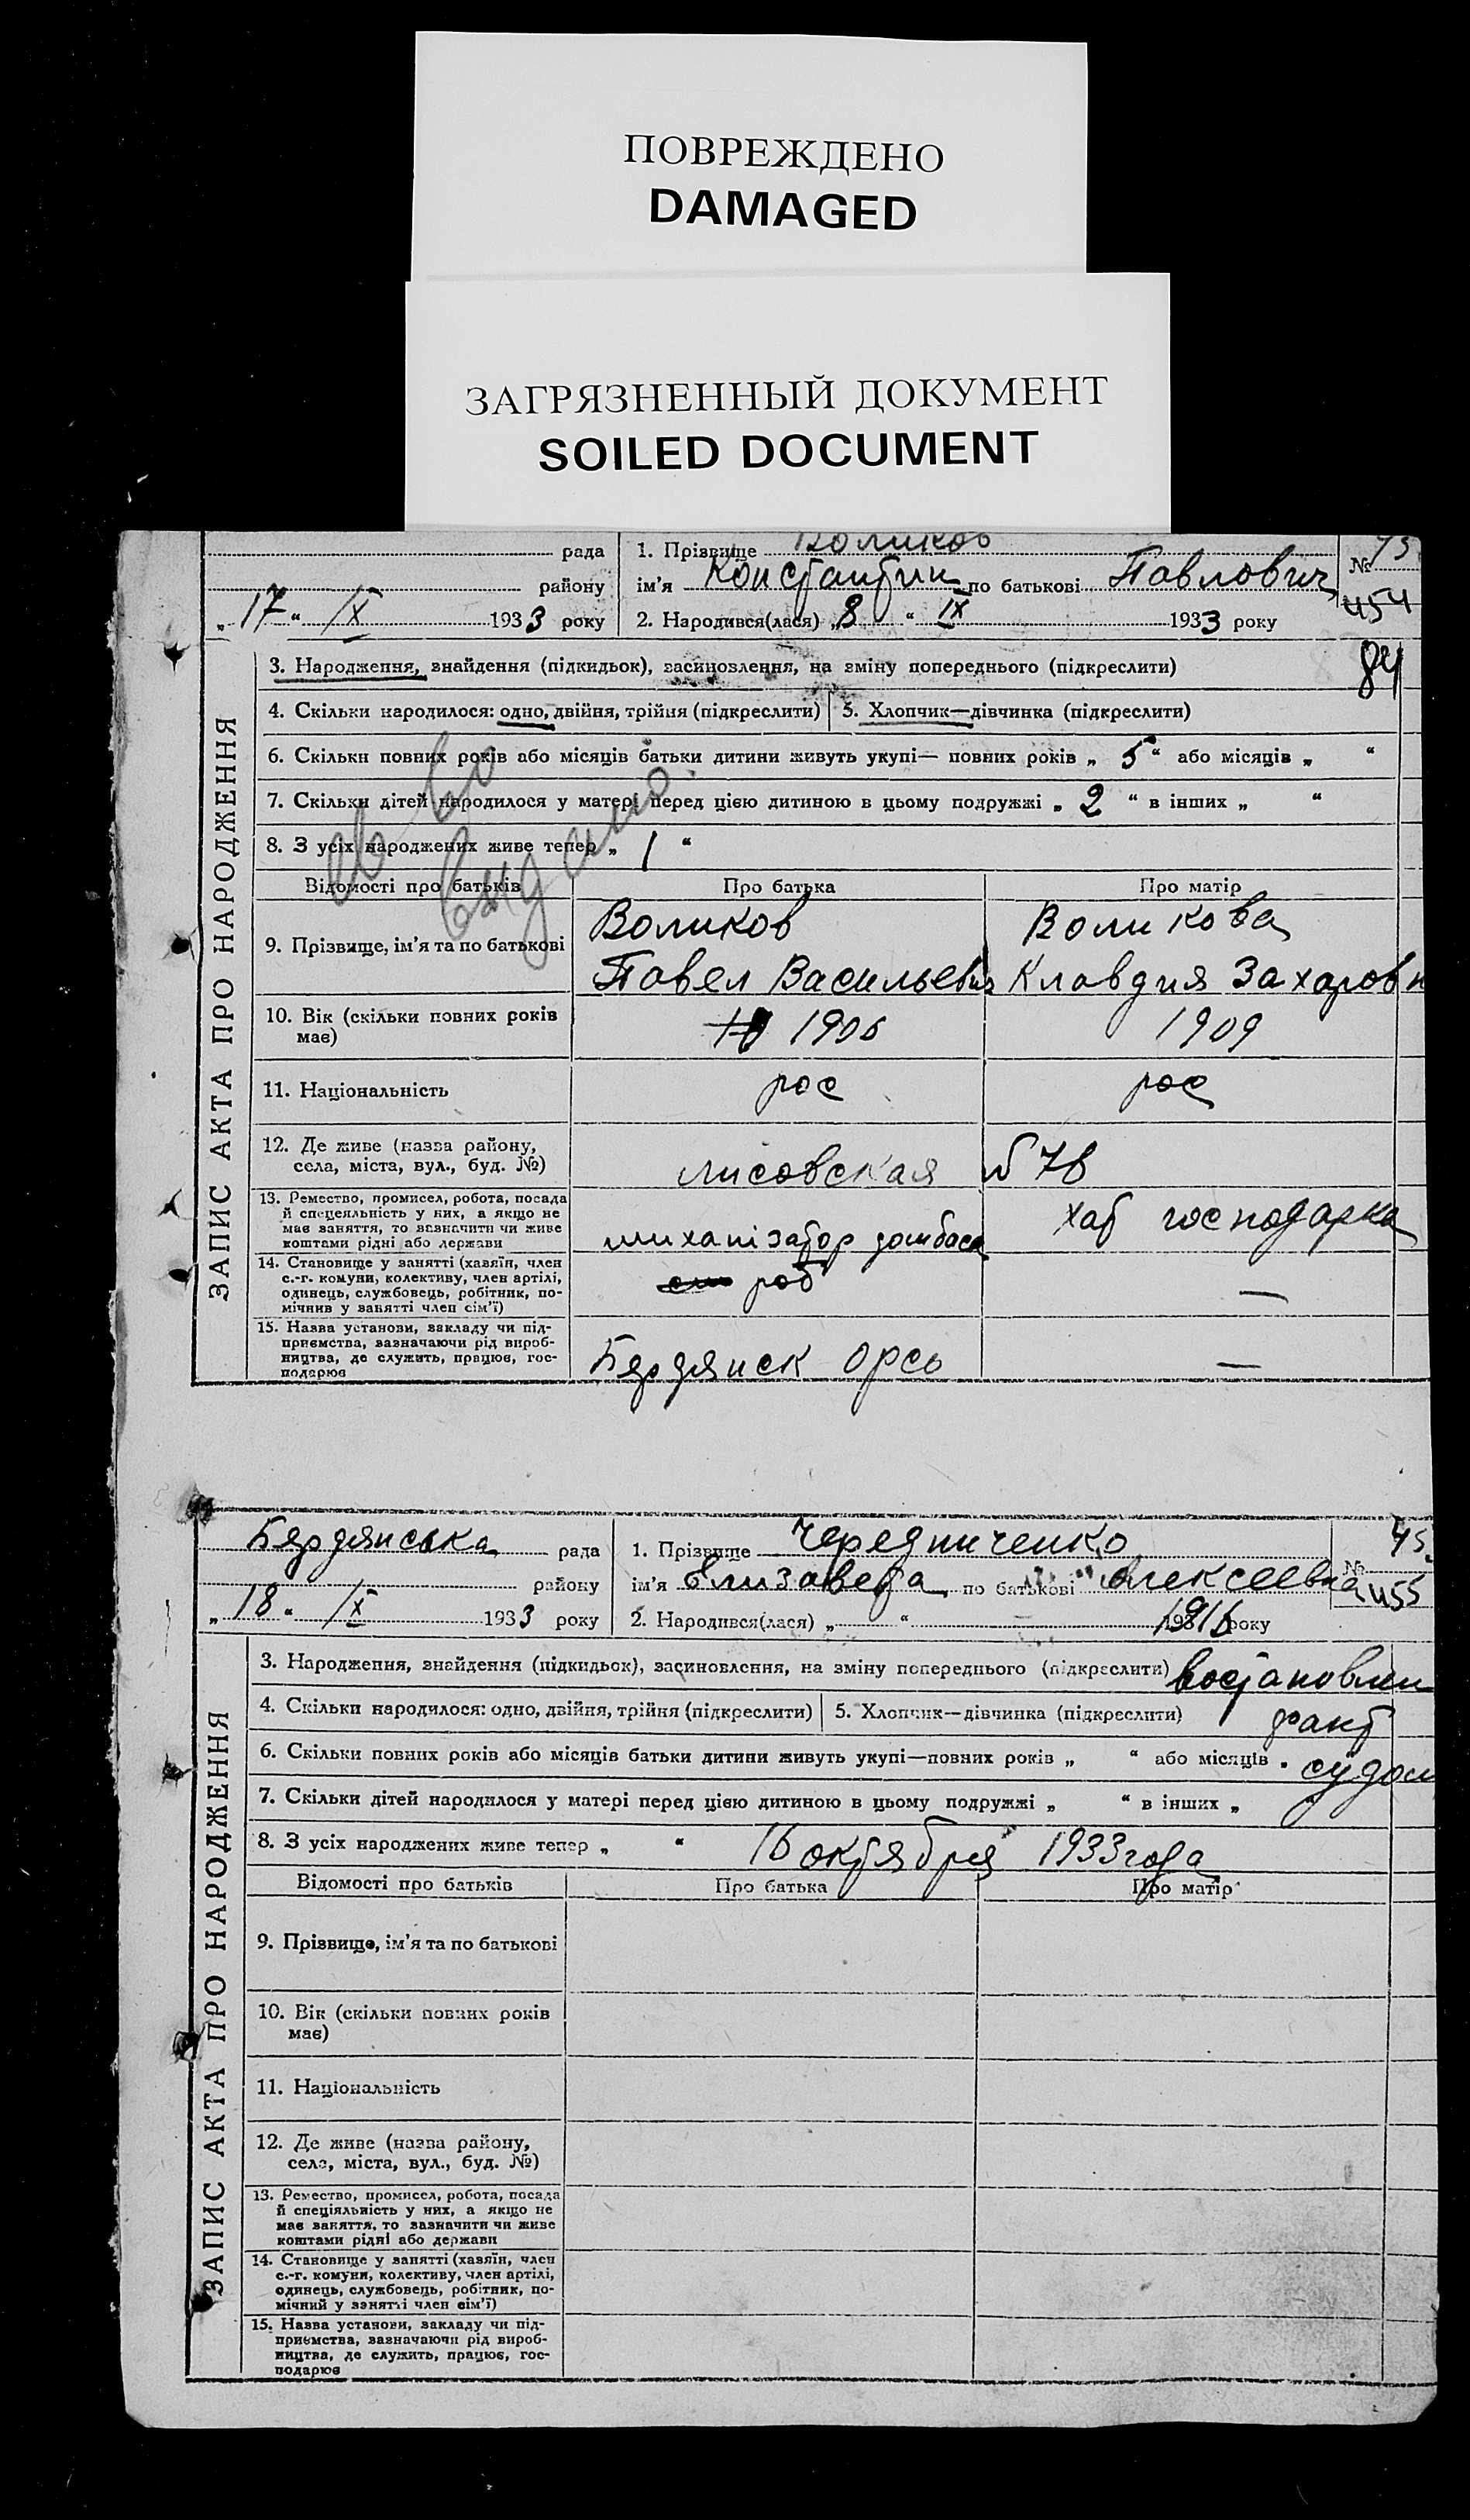 ПОВРЕЖДЕНО
DAMAGED
ЗАГРЯЗНЕННЫЙ ДОКУМЕНТ
SOILED DOCUMENT
рада 1. Прізвище Воликов №
району ім’я Константин по батькові Павлович 454
„17“ IX 1933 року 2. Народився(лася) „8“ IX 1933 року
84
ЗАПИС АКТА ПРО НАРОДЖЕННЯ
3. Народження, знайдення (підкидьок), засиновлення, на зміну попереднього (підкреслити)
4. Скільки народилося: одно, двійня, трійня (підкреслити) 5. Хлопчик—дівчинка (підкреслити)
6. Скільки повних років або місяців батьки дитини живуть укупі— повних років „ 5 “ або місяців „ “
7. Скільки дітей народилося у матері перед цією дитиною в цьому подружжі „ 2 “ в інших „ “
8. З усіх народжених живе тепер „ 1 “
св во
выдано.
Відомості про батьків Про батька Про матір
9. Прізвище, ім’я та по батькові
Воликов Воликова
Павел Васильевич Клавдия Захаровн
10. Вік (скільки повних років має) 1906 1909
11. Національність рос рос
12. Де живе (назва району,
села, міста, вул., буд. №)
лисовская № 78
13. Ремество, промисел, робота, посада
й спецеяльність у них, а якщо не
має заняття, то вазначити чи живе
коштами рідні або держави
михапізатор домбаса хат господарка
14. Становище у занятті (хавяїн, член
с.-г. комуни, колективу, член артілі,
одинець, службовець, робітник, по-
мічнив у занятті член сім’ї)
роб —
15. Назва установи, закладу чи під-
приємства, вазначаючи рід вироб-
ництва, де служить, працює, гос-
подарює
Бердянск орсь —
Бердянська рада 1. Прізвище Чередниченко 45
району ім’я Елизавета по батькові Алексеевна № 455
„18“ IX 1933 року 2. Народився(лася) „ “ 1916 року
ЗАПИС АКТА ПРО НАРОДЖЕННЯ
3. Народження, знайдення (підкидьок), засиновлення, на зміну попереднього (підкреслити) востановлен
4. Скільки народилося: одно, двійня, трійня (підкреслити) 5. Хлопчик—дівчинка (підкреслити) факт
6. Скільки повних років або місяців батьки дитини живуть укупі—повних років „ “ або місяців „ судом
7. Скільки дітей народилося у матері перед цією дитиною в цьому подружжі „ “ в інших „ “
8. З усіх народжених живе тепер „ “ 16 октября 1933 года
Відомості про батьків Про батька Про матір
9. Прізвище, ім’я та по батькові
10. Вік (скільки повних років
має)
11. Національність
12. Де живе (назва району,
села, міста, вул., буд. №)
13. Ремество, промисел, робота, посада
й спеціяльність у них, а якщо не
має заняття, то зазначити чи живе
коштами рідні або держави
14. Становище у занятті (хавяїн, член
с.-г. комуни, колективу, член артілі,
одинець, службовець, робітник, по-
мічний у занятті член сім’ї)
15. Назва установи, закладу чи під-
приємства, вазначаючи рід вироб-
ництва, де служить, працює, гос-
подарює